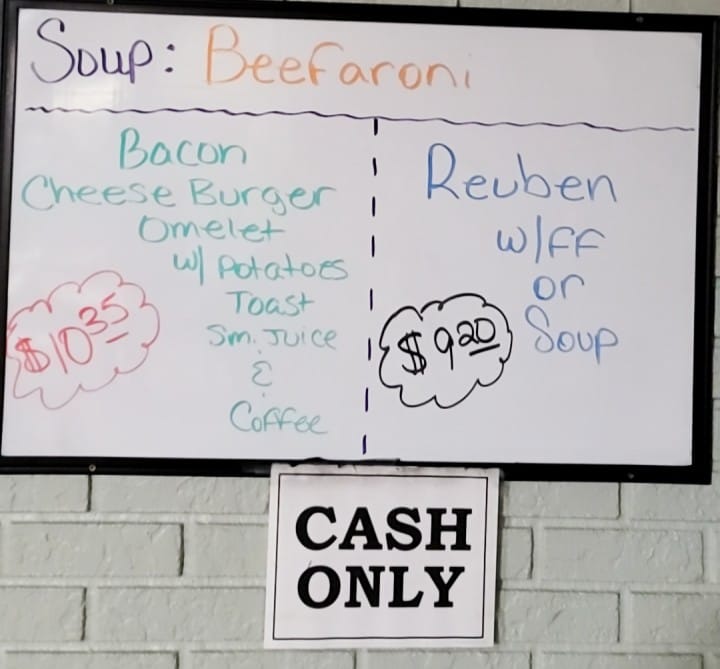 Soup: Beefaroni
Bacon
Cheese Burger
Omelet
w/ Potatoes
Toast
Sm. Juice
&
Coffee
$10 35
Reuben
w/FF
or
Soup
$9 20
CASH
ONLY